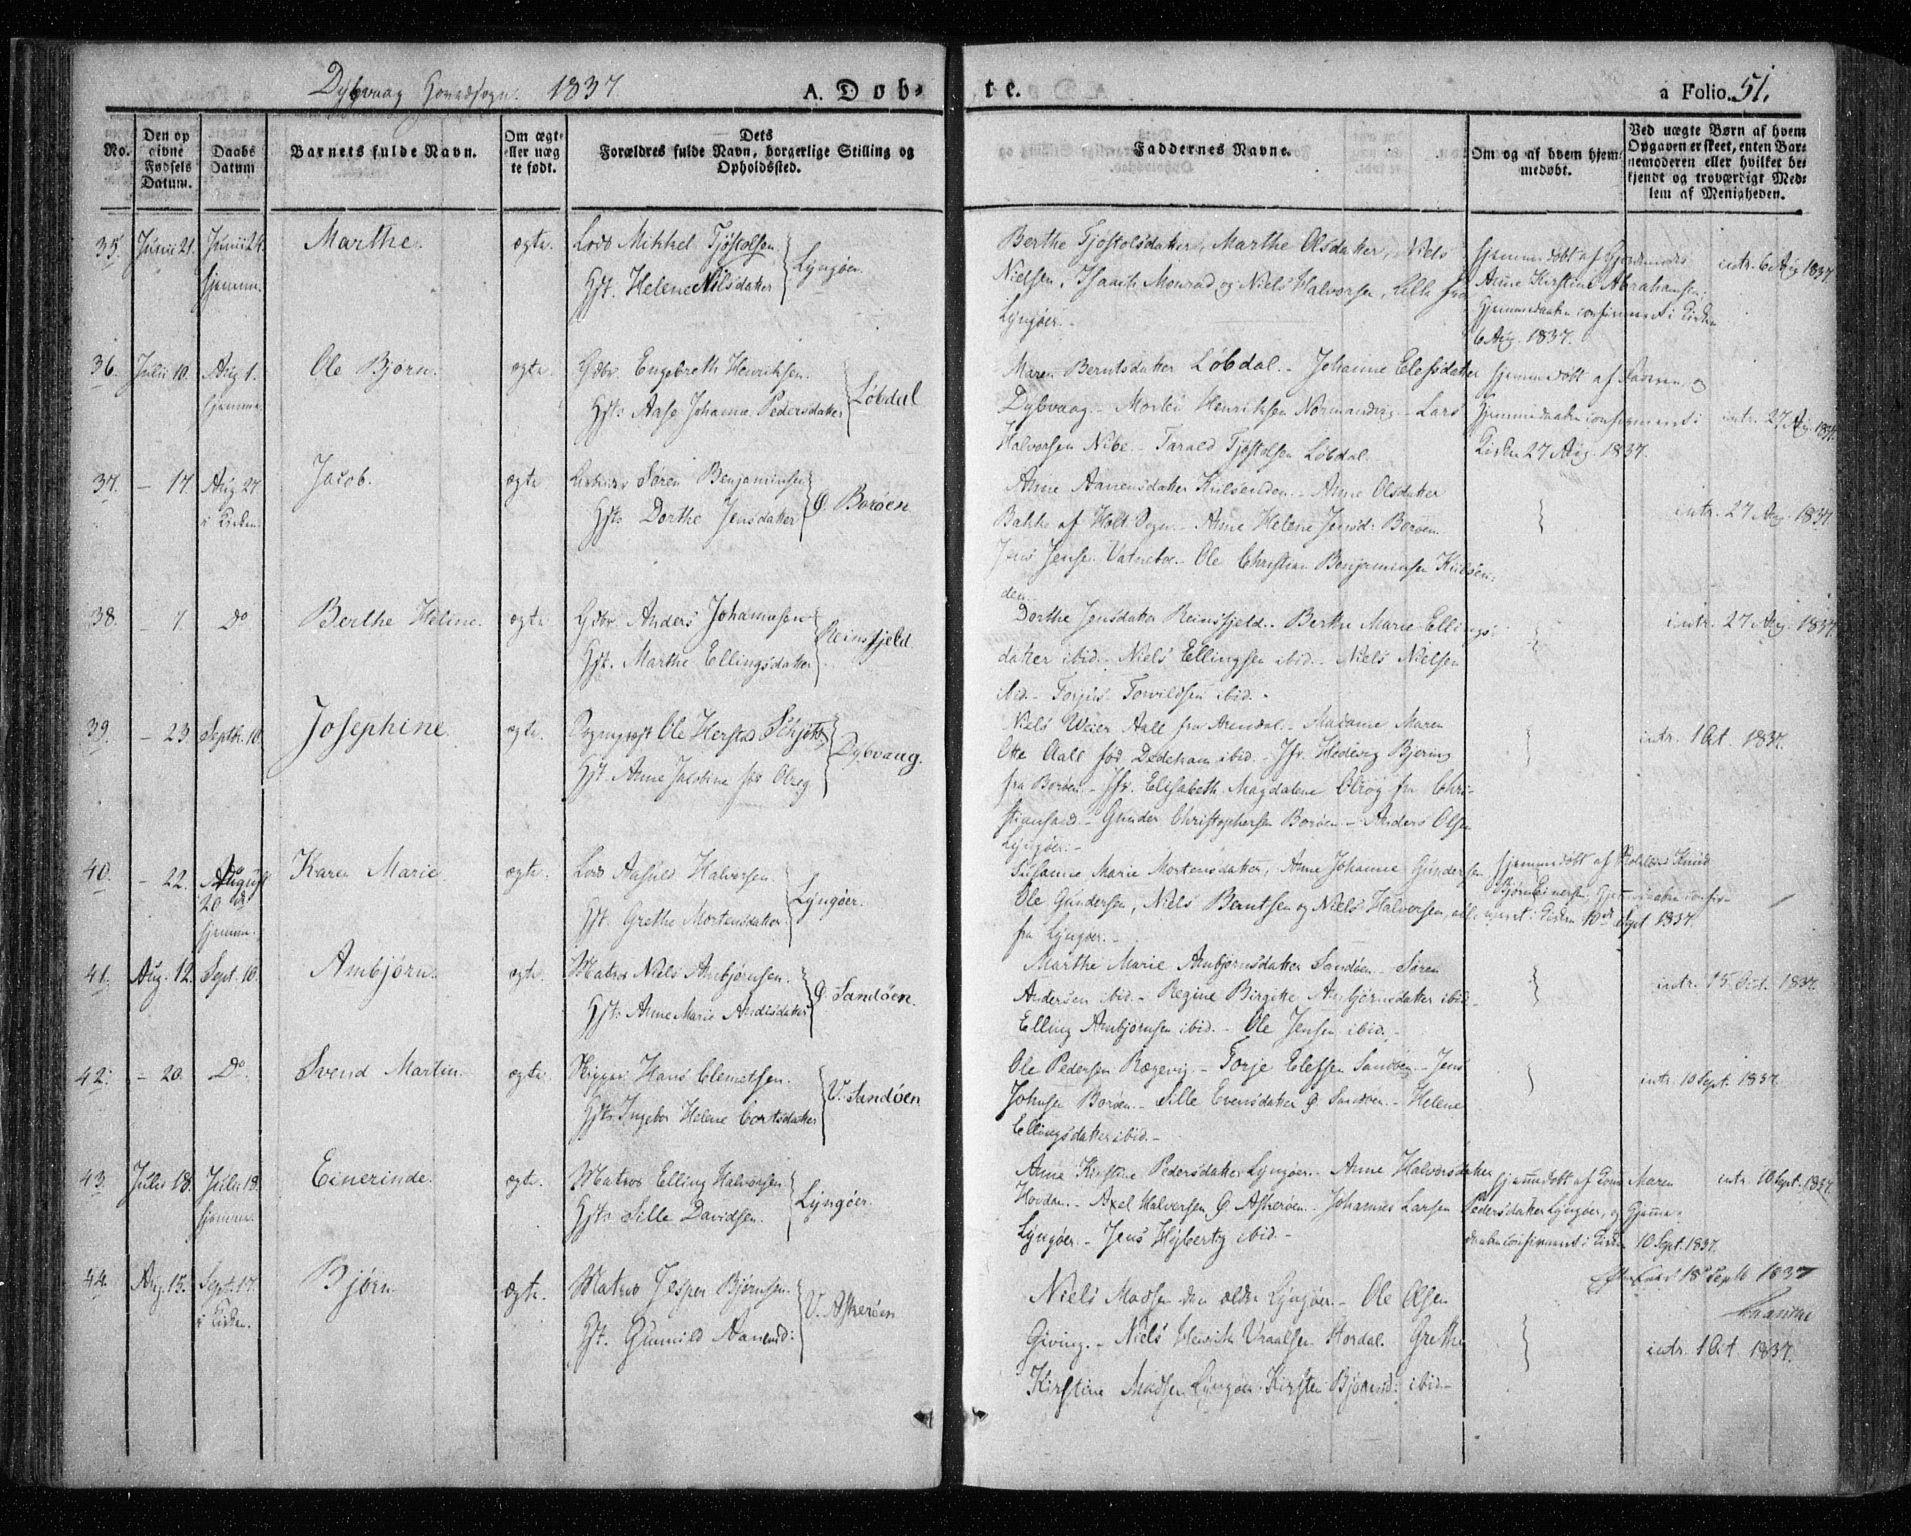 Dybvaag Hovedsogn. 1837.
A. Døb-
te.
a Folio 51.
No.
Den op
givne
Fødsels
Datum.
Daabs
Datum
Barnets fulde Navn.
Om ægt-
eller uæg
te født.
Dets
Forældres fulde Navn, borgerlige Stilling og
Opholdssted.
Faddernes Navne.
Om og af hvem hjem-
medøbt.
Ved uægte Børn af hvem
Opgaven er skeet, enten Bar-
nemoderen eller hvilket be-
kjendt og troværdigt Med-
lem af Menigheden.
35. Junii 21. Junii 24. Marthe. ægte Lods Mikkel Tjøstolsen
hjemme. Hst. Helene Nilsdatter Lyngøer.
Berthe Tjøstolsdatter, Marthe Olsdatter, Niels
Nielsen, Monrad og Niels Halvorsen, alle fra
Lyngøer.
Hjemmedøbt af
Anne Kirstine Abrahamsen;
Hjemmedaaben confirmeret i Kirken
6 Aug. 1837.
intr. 6 Aug 1837.
36. Julii 10. Aug 1. Ole Bjørn. ægte Gdbr. Engebreth Henriksen.
hjemme Hst. Aase Johanne Pedersdatter Løbdal
Maren Berntsdatter Løbdal. - Johanne Elefsdatter
Dybvaag. - Henriksen Normandvig - Lars
Halvorsen Nibe - Tarald Tjøstolsen Løbdal.
Hjemmedøbt af Faderen, og
Hjemmedaaben confirmeret i
Kirken 27 Aug. 1837.
intr. 27 Aug. 1837.
37. - 17. Aug 27 Jacob. ægte Søren Benjaminsen
i Kirken. Hst. Dorthe Jensdatter Ø. Borøen.
Anne Aanensdatter Kilsenden. - Anne Olsdatter
Bakke af Holt Sogn - Anne Helene Jensd: Borøen
Jens Jensen Vatnebo. - Ole Christian Benjaminsen Kilsen-
den.
intr. 27 Aug. 1837
38. - 7. Do Berthe Helene. ægte Gdbr. Anders Johannesen
Hst. Marthe Ellingsdatter Reinsfjeld.
Dorthe Jensdatter Reinsfjeld. - Berthe Marie Ellings-
datter ibid. - Niels Ellingsen ibid. - Niels Nielsen
ibid. - Torvildsen ibid. -
intr. 27 Aug. 1837.
39. - 23. Septbr. 10. Josephine. ægte. Sognepræst Ole Herstad Schjøtt
Hst. Anne Jacobine fød Olrog Dybvaag.
Niels Weier Aall fra Arendal. - Madame Maren
Otte Aall fød Dedekam ibid. - Jfr. Hedevig Bjering
fra Borøen - Jfr. Elisabeth Magdalene Olrog fra Chri-
stiansand. - Gunder Christophersen Borøen - Anders Olsen
Lyngøer. -
intr. 1 Oct. 1837.
40. - 22. August Karen Marie. ægte. Lods Aasuld Halvorsen.
20
hjemme. Hst. Grethe Mortensdatter. Lyngøer.
Susanne Marie Mortensdatter, Anne Johanne Gundersen
Ole Gundersen, Niels Berntsen og Niels Halvorsen, alle
fra Lyngøer. -
Hjemmedøbt af Knud
Bjørn Einersen, Hjemmedaaben confir-
meret i Kirken 10de Sept 1837.
41. Aug. 12. Sept. 10. Ambjørn. ægte. Matros Niels Ambjørnsen.
Hst. Anne Marie Andersdatter Ø. Sandøen.
Marthe Marie Ambjørnsdatter Sandøen - Søren
Andersen ibid - Regine Birgitte Ambjørnsdatter ibid. -
Elling Ambjørnsen ibid. - Ole Jensen ibid. -
intr. 15 Oct. 1837.
42. - 20. Do Svend Martin. ægte. Rigger Hans Clemetsen.
Hst. Ingebor Helene Cortsdatter V. Sandøen
Ole Pedersen Rægevig - Torje Elefsen Sandøen - Jens
Johnsen Borøen. - Sille Evensdatter Ø. Sandøen. - Helene
Ellingsdatter ibid. -
intr. 10 Sept. 1837.
43. Julii 18. Julii 18. Einerinde. ægte. Matros Elling Halvorsen.
hjemme. Hst. Sille Davidsen. Lyngøer.
Anne Kirstine Pedersdatter Lyngøer. - Anne Halvorsdatter
Hovdan - Axel Halvorsen Ø. Askerøen. - Johannes Larsen
Lyngøer - Jens Hyberty ibid. -
Hjemmedøbt af Maren
Pedersdatter Lyngøer, og Hjemme-
daaben confirmeret i Kirken 10 Sept. 1837.
intr. 10 Sept. 1837.
44. Aug. 15. Sept. 17. Bjørn. ægte. Matros Jesper Bjørnsen.
i Kirken. Hst. Gunnild Aanensd: V. Askerøen
Niels Madsen den ældre Lyngøer. - Ole Olsen
Giving. - Niels Henrik Vraalsen Hordal. Grethe
Kirstine Madsen Lyngøer. Kirsten Bjørnsd: ibid. -
18 Septb 1837
intr. 1 Oct 1837.